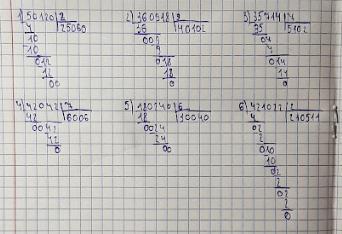 1) 50120 | 2
4 | 25060
10
10
012
12
00
2) 360918 | 9
36 | 40102
009
9
018
18
0
3) 35714 | 7
35 | 5102
07
7
014
14
0
4) 42042 | 7
42 | 6006
0042
42
0
5) 180240 | 6
18
0024
24
00
6) 421022 | 2
4 | 210511
02
2
010
10
02
2
02
2
0